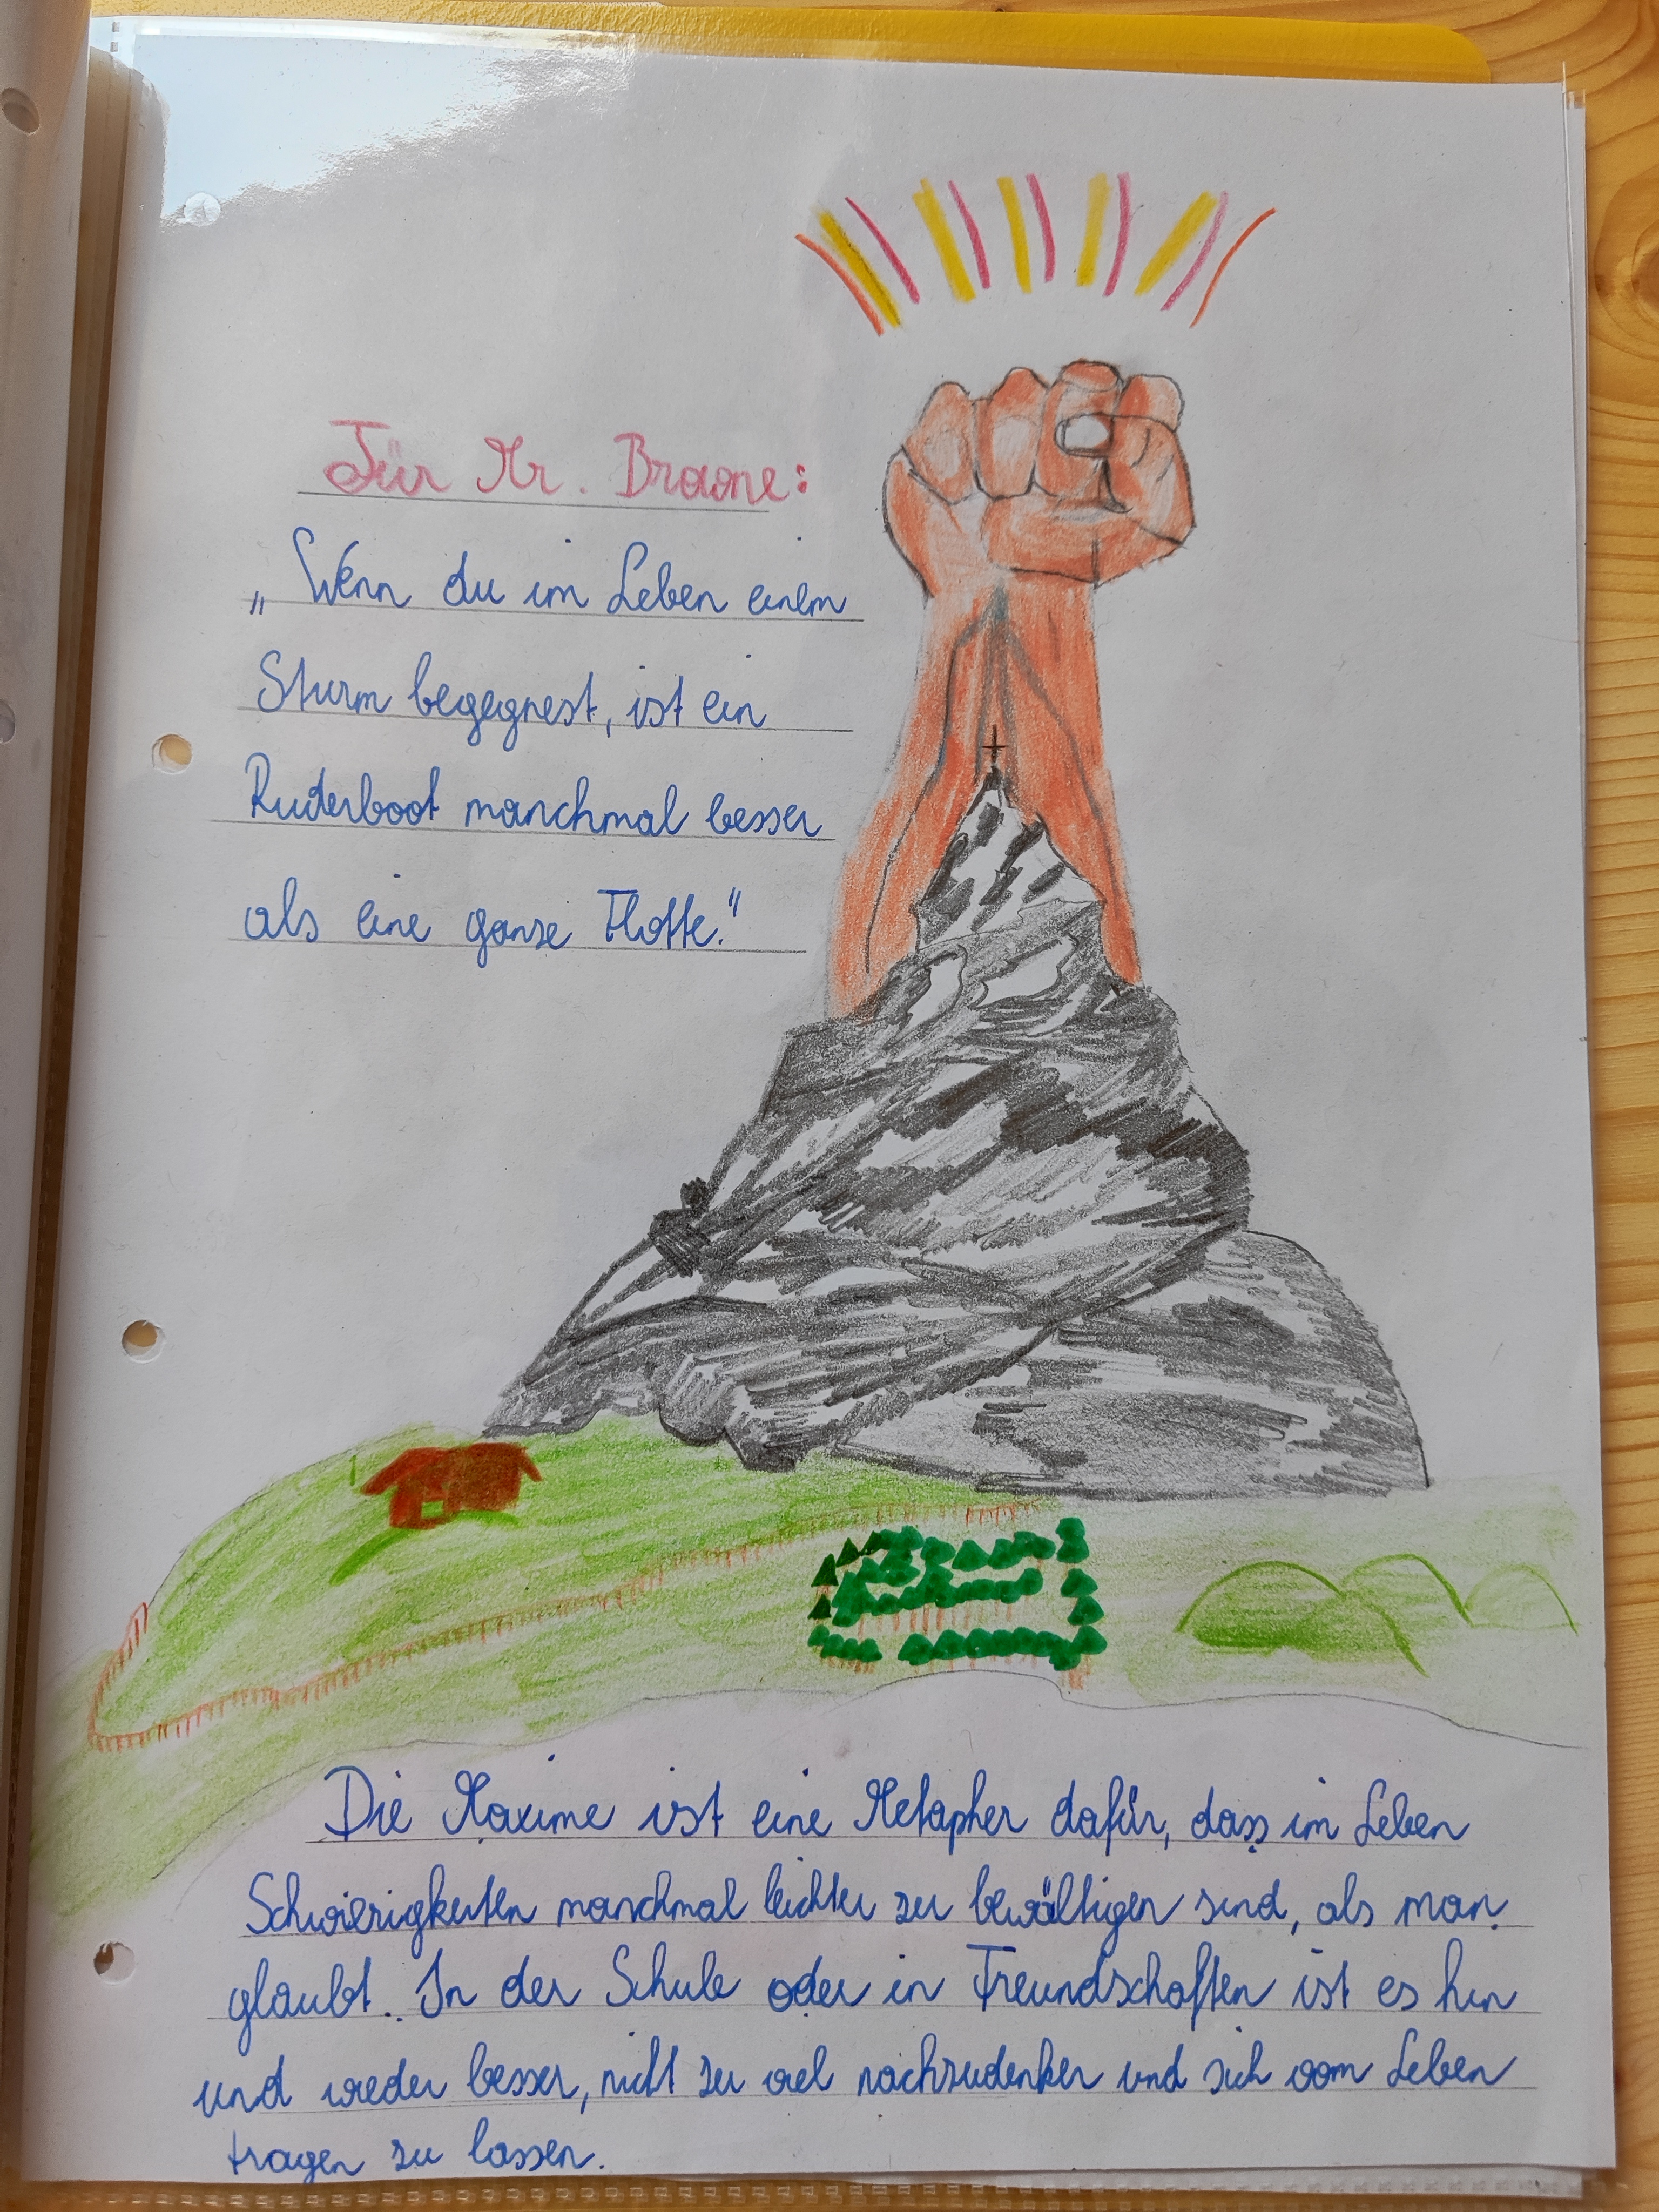 Für Mr. Browne:
„Wenn du im Leben einem
Sturm begegnest, ist ein
Ruderboot manchmal besser
als eine ganze Flotte."
Die Maxime ist eine Metapher dafür, dass im Leben
Schwierigkeiten manchmal leichter zu bewältigen sind, als man
glaubt. In der Schule oder in Freundschaften ist es hin
und wieder besser, nicht zu viel nachzudenken und sich vom Leben
tragen zu lassen.